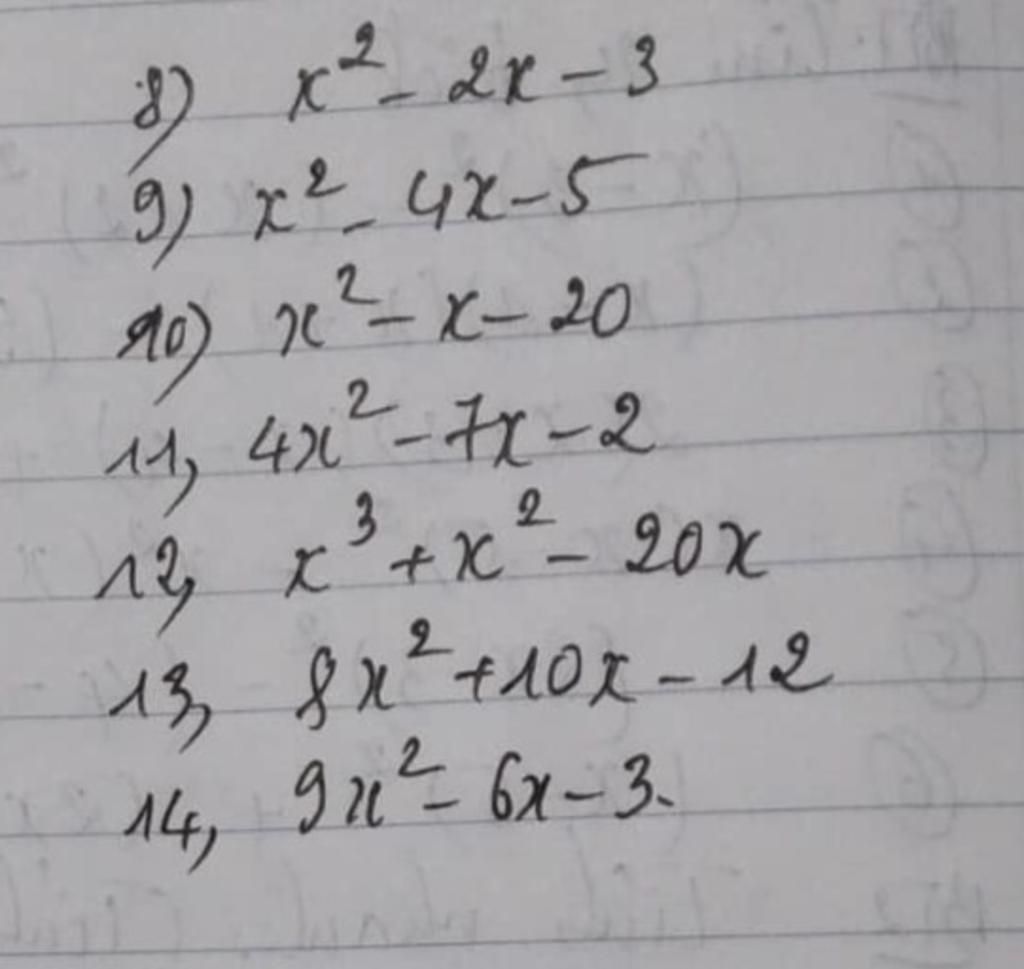 8) x² - 2x - 3
9) x² - 4x - 5
10) x² - x - 20
11, 4x² - 7x - 2
12, x³ + x² - 20x
13, 8x² + 10x - 12
14, 9x² - 6x - 3.